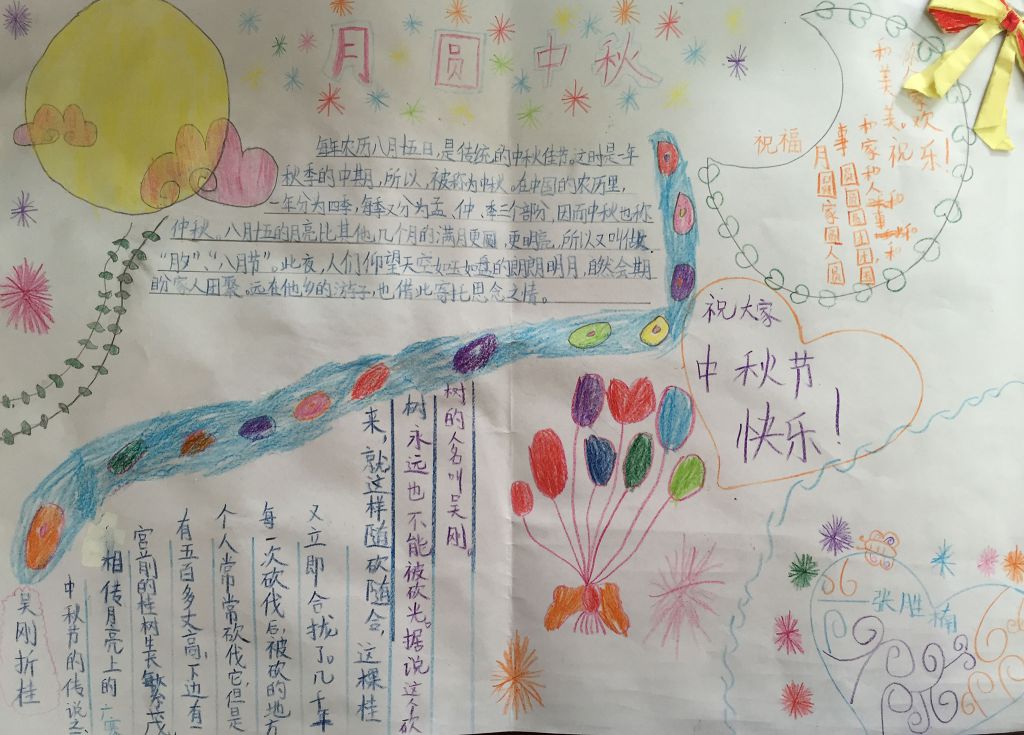 月圆中秋
每年农历八月十五日,是传统的中秋佳节。这时是一年
秋季的中期,所以,被称为中秋。在中国的农历里,
一年分为四季,每季又分为孟、仲、季三个部分,因而中秋也称
仲秋。八月十五的月亮比其他几个月的满月更圆,更明亮,所以又叫做
“月夕”、“八月节”。此夜,人们仰望天空如玉如盘的朗朗明月,自然会期
盼家人团聚。远在他乡的游子,也借此寄托思念之情。
祝福
月圆家圆人圆
事圆圆团圆
和家和人和
和美美,祝
欢乐!
祝大家
中秋节
快乐!
吴刚折桂
中秋节的传说之
相传月亮上的广寒
宫前的桂树生长繁茂
有五百多丈高,下边有
个人常常砍伐它,但是
每一次砍伐后,被砍的地方
又立即合拢了。几千年
来,就这样随砍随合,这棵桂
树永远也不能被砍光。据说这个砍
树的人名叫吴刚。
张胜楠